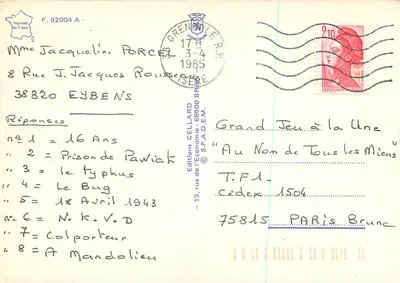 imprimé en France
F. 92004 A -
Mme Jacqueline PORCEL
8 Rue J. Jacques Rousseau
38320 EYBENS
Réponses
n° 1 = 16 Ans
" 2 = Prison de Pawiak
" 3 = le typhus
" 4 = Le Bug
" 5 = 18 Avril 1943
" 6 = N. K. V. D
" 7 = Colporteur
" 8 = A Mandolieu
Editions CELLARD
13, rue de l'Economie - 69500 BRON
© S.P.A.D.E.M.
38 GRENOBLE R.P.
17 H
3-4
1985
ISERE
2,10
Grand Jeu à la Une
"Au Nom de Tous les Miens"
T.F1-
Cédex 1504
75815 PARIS Brune